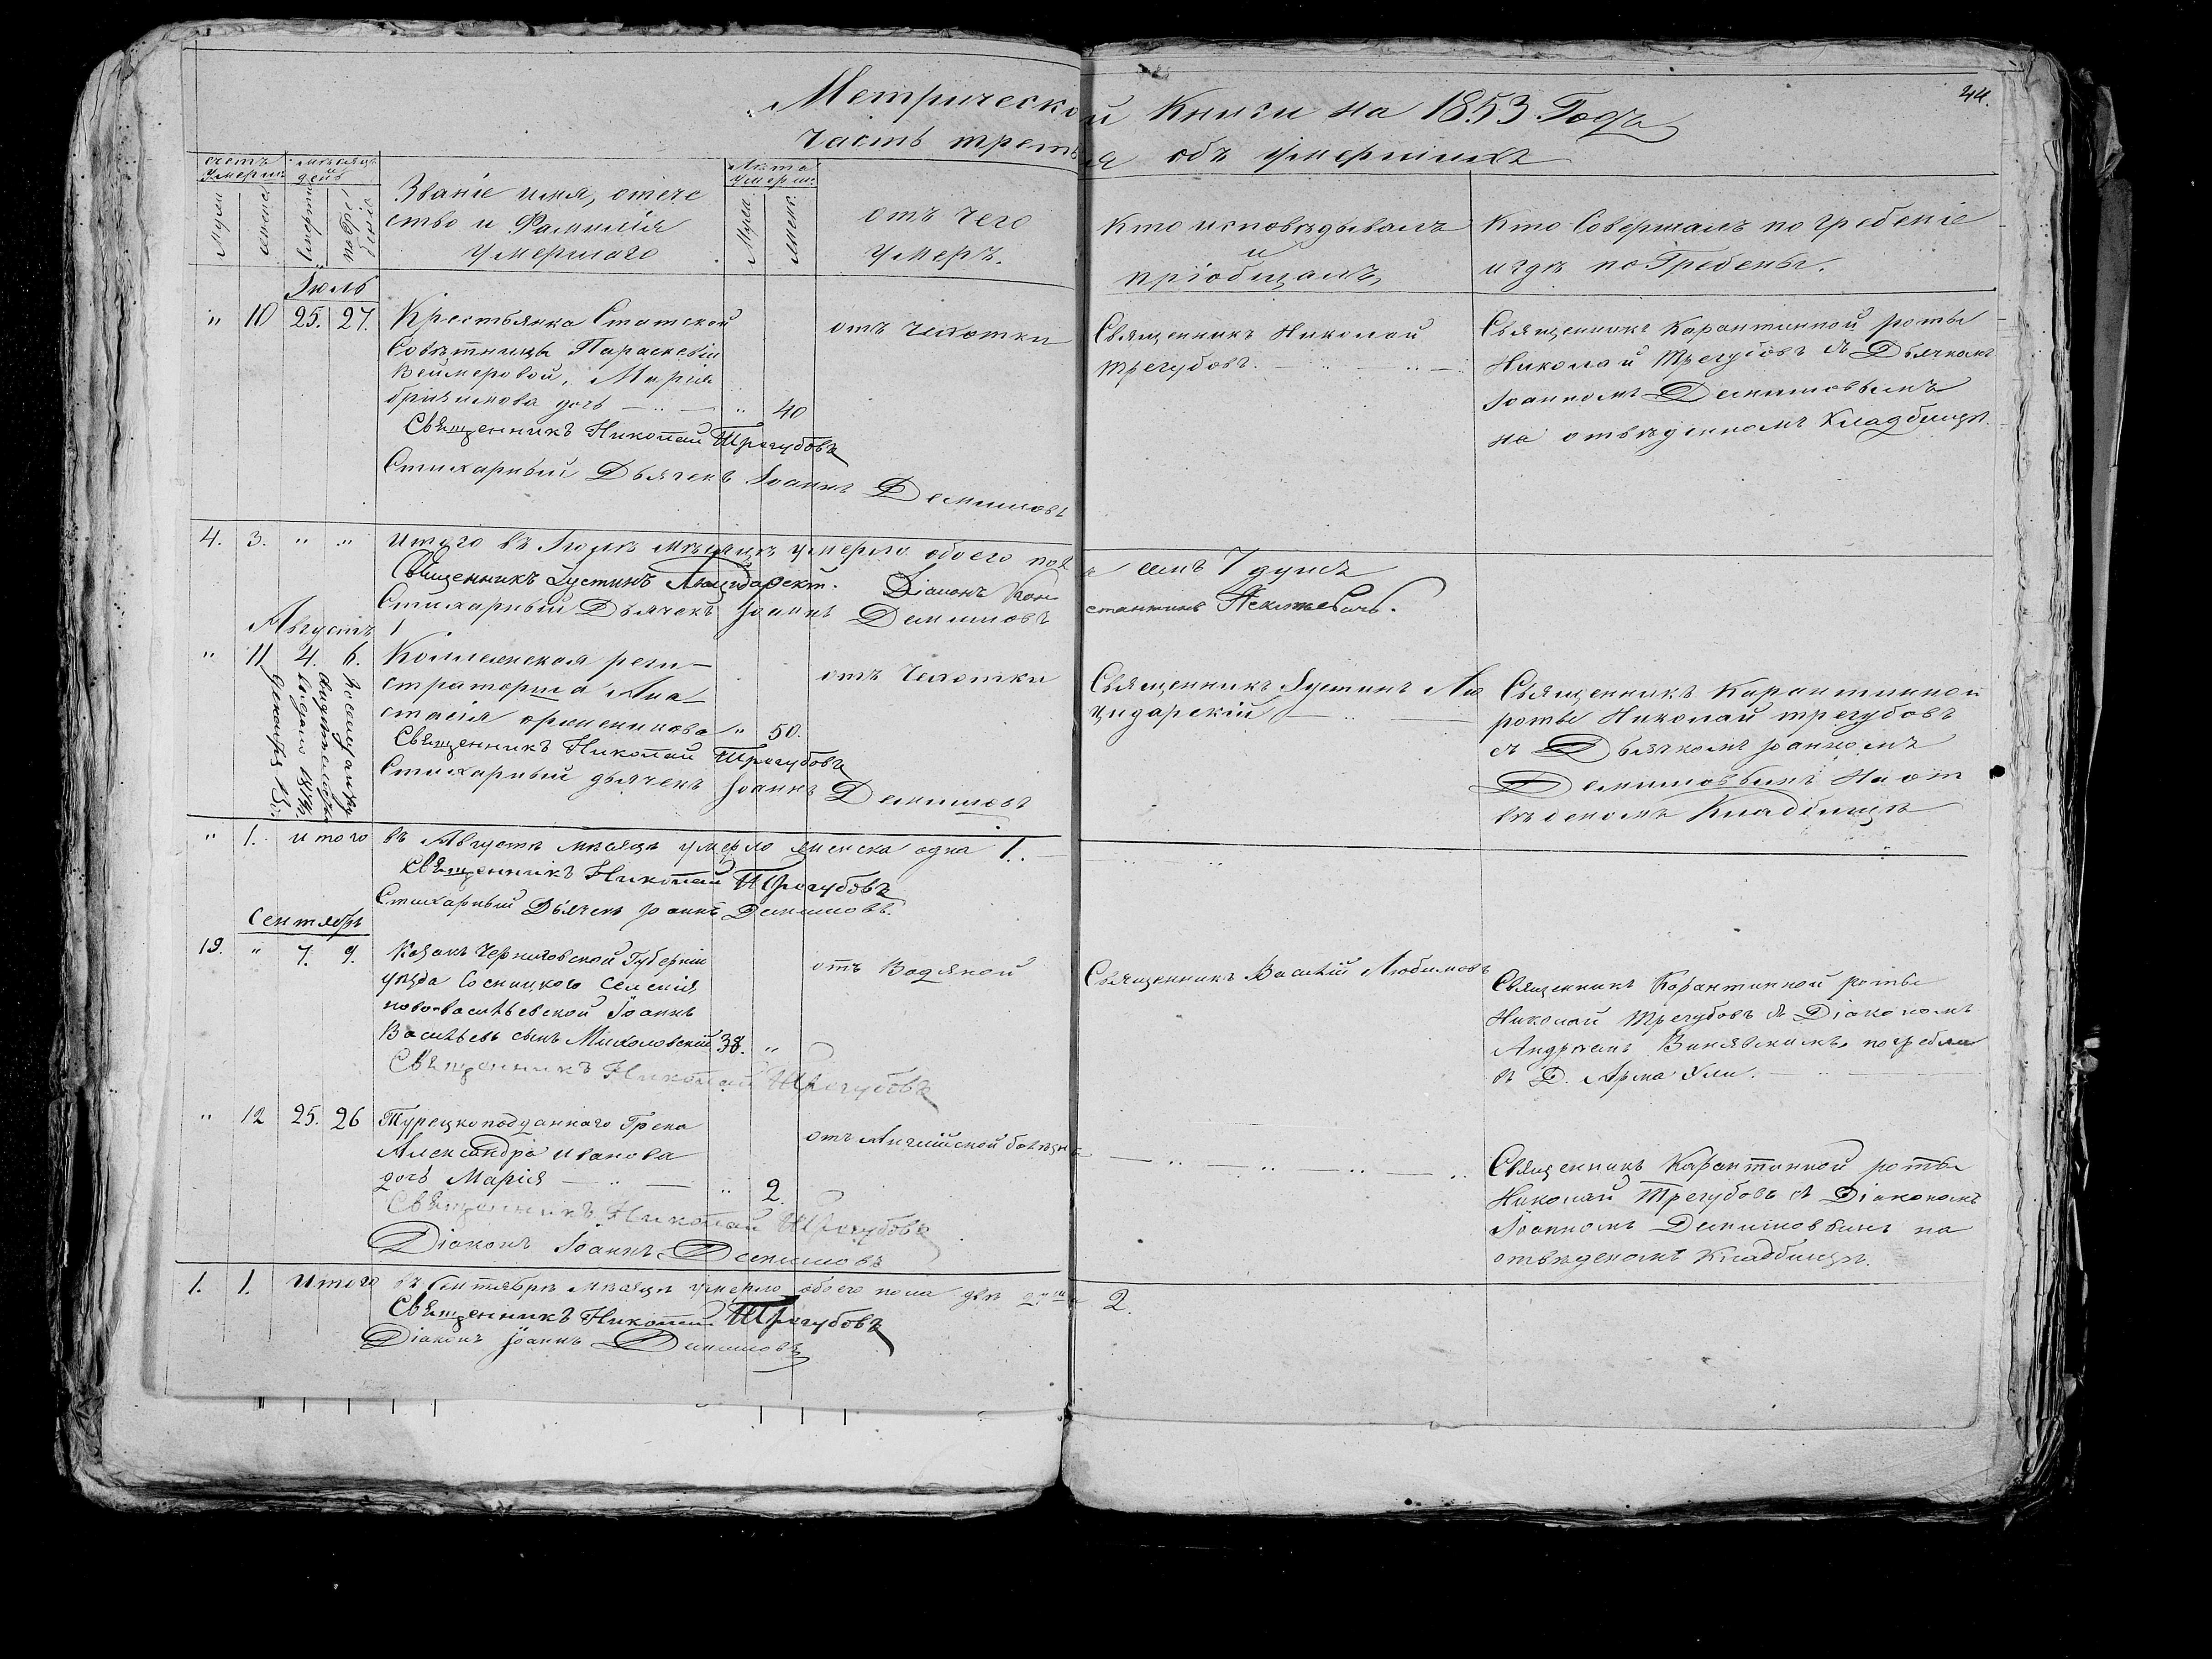 44.
Метрической Книги на 1853 Годъ
часть третья объ умершихъ
счетъ умерш.
мѣсяцъ и день
Мужеска
женска
смерти
погребенія
Званіе имя, отече
ство и Фамилія
умершаго
Лѣта умерш.
Мужс.
Женс.
отъ чего
умеръ.
Кто исповѣдывалъ
и
пріобщалъ,
Кто Совершалъ погребеніе
и гдѣ по Гребены.
Іюль
" 10 25. 27.
Крестьянка Статской
Совѣтницы Параскевіи
Веймеровой, Марія
дочь — " — " 40
отъ чахотки
Священникъ Николай
Трегубовъ. — " — " —
Священникъ Карантинной роты
Николай Трегубовъ съ Дьячкомъ
Іоанномъ Демшовымъ
на отвѣденномъ Кладбищѣ.
Священникъ Николай Трегубовъ
Стихарный Дьячекъ Іоаннъ Демшовъ
4. 3. " " Итого въ Іюлѣ мѣсяцѣ умерло обоего пола семь 7 душъ
Священникъ Іустинъ
Діаконъ Константинъ
Стихарный Дьячекъ Іоаннъ Демшовъ
Августъ
" 11 4. 6.
Коллежская реги—
страторша Ана—
стасія " 50.
отъ Чахотки
Священникъ Іустинъ Ли
цидарскій — " —
Священникъ Карантинной
роты Николай трегубовъ
съ Дьячкомъ Іоанномъ
Демшовымъ На от
вѣденомъ Кладбищѣ
Священникъ Николай Трегубовъ
Стихарный дьячекъ Іоаннъ Демшовъ
" 1. итого въ Августѣ мѣсяцѣ умерло женска одна 1. —
Священникъ Николай Трегубовъ
Стихарный Дьячекъ Іоаннъ Демшовъ.
Сентябрь
19. " 7. 9.
Козакъ Черниговской Губерніи
уѣзда Сосницкого Селенія
ново-васильевской Іоаннъ
Васильевъ сынъ Миколовскій 38. "
отъ Водяной
Священникъ Василій Любимовъ
Священникъ Карантинной роты
Николай Трегубовъ съ Діакономъ
погребли
въ Д. Арма Эли. — " —
Священникъ Николай Трегубовъ
" 12 25. 26
Турецкоподданнаго Грека
Александра Иванова
дочь Марія — " — " 2.
отъ Англійской болѣзни
— " — " — " — "
Священникъ Карантинной роты
Николай Трегубовъ съ Діакономъ
Іоанномъ Демшовымъ на
отвѣденомъ Кладбищѣ.
Священникъ Николай Трегубовъ
Діаконъ Іоаннъ Демшовъ
1. 1. Итого въ Сентябрѣ мѣсяцѣ умерло обоего пола двѣ души 2.
Священникъ Николай Трегубовъ
Діаконъ Іоаннъ Демшовъ